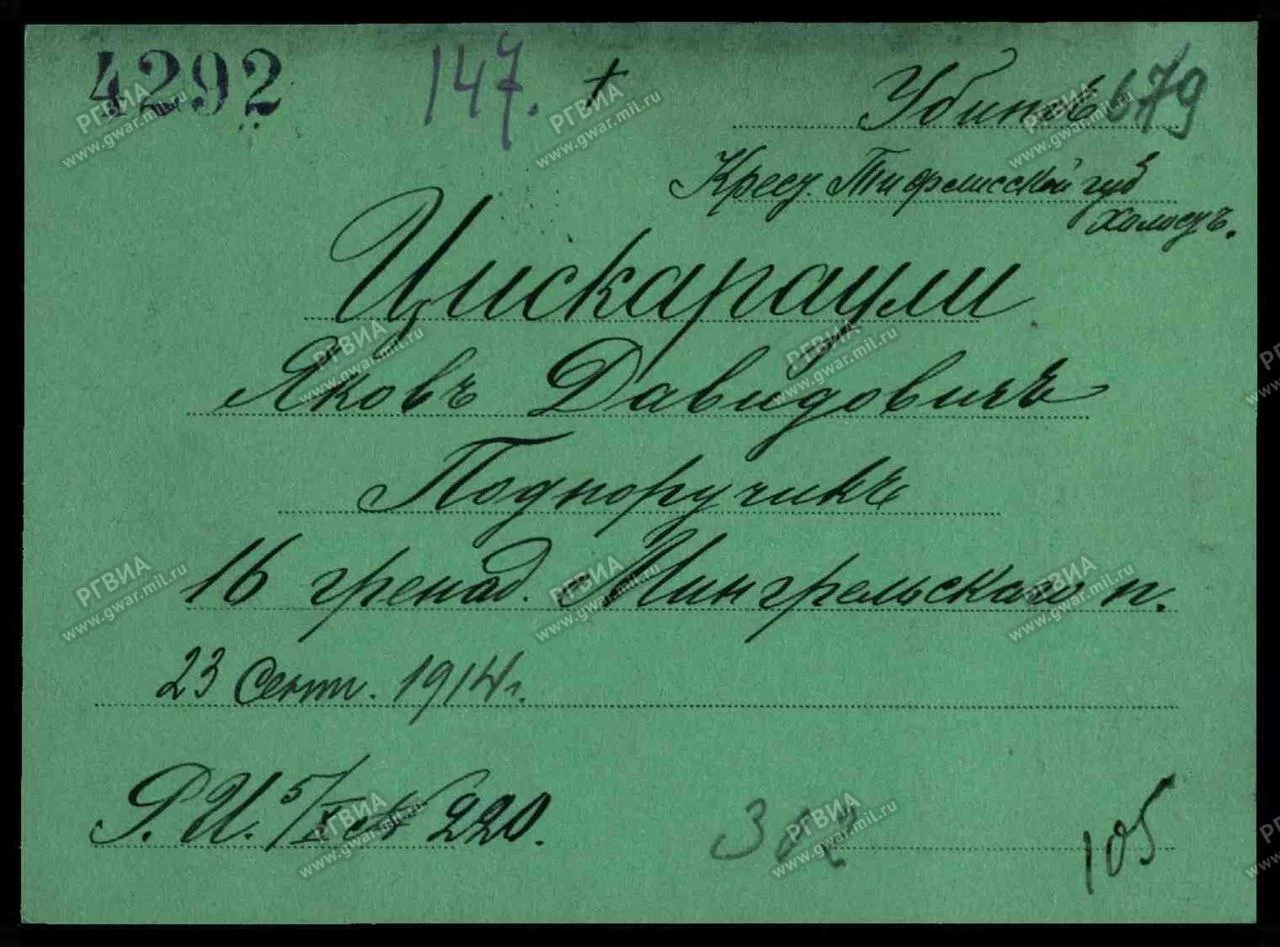 4292 147. † Убитъ 679
Крест. Тифлисской губ
холостъ.
Цискараули
Яковъ Давидовичъ
Подпоручикъ
16 гренад. Мингрельскаго п.
23 Сент. 1914 г.
Р. И. 5/X № 220.
362
105
РГВИА
www.gwar.mil.ru